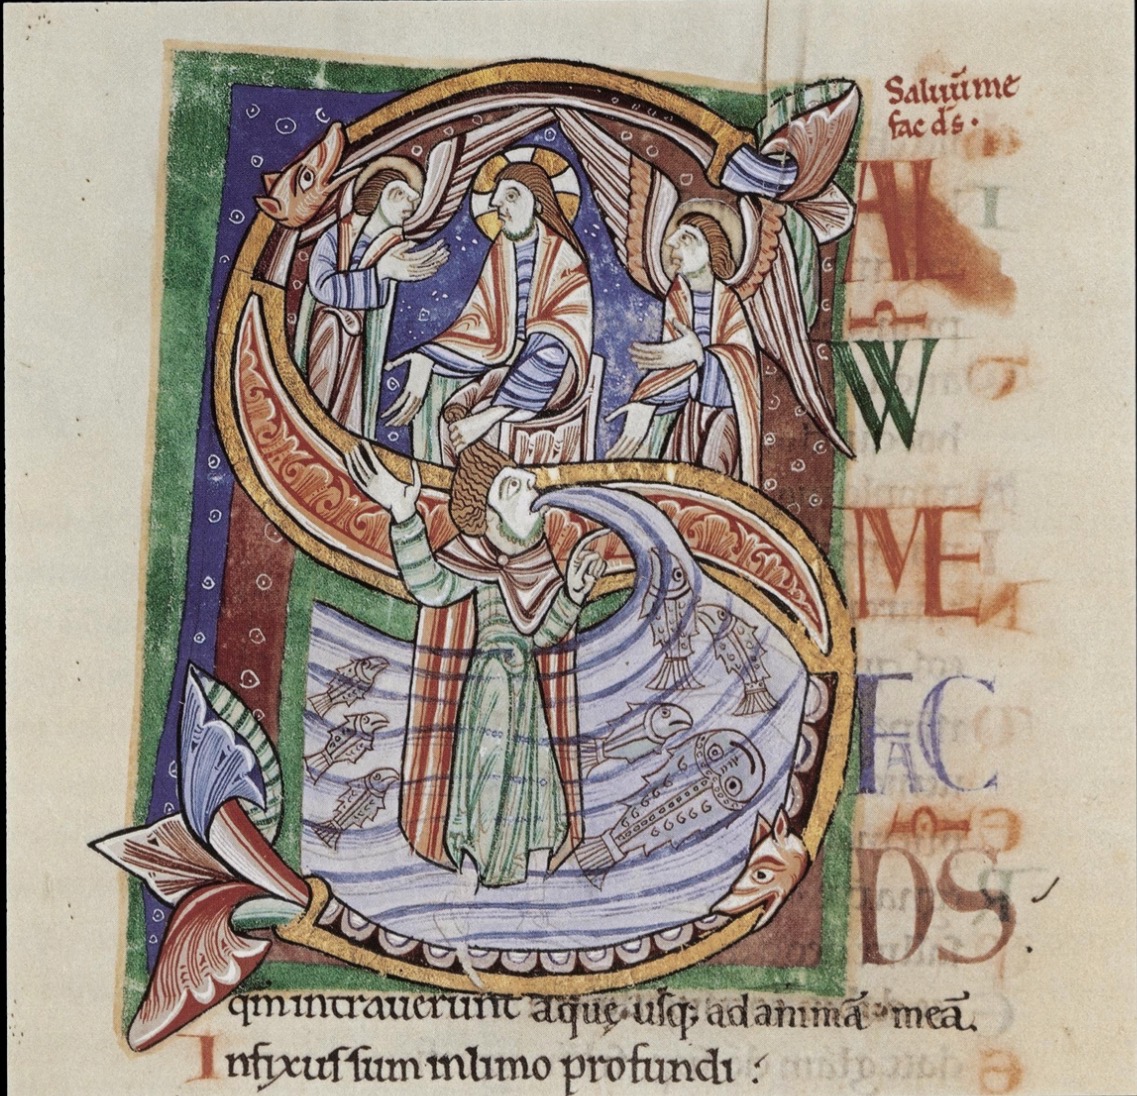 Saluū me
fac d̄s ·
S AL
W̄
ME
FAC
D̄S
qm̄ intrauerunt aquę usq; ad animā meā.
Infixus sum in limo profundi :